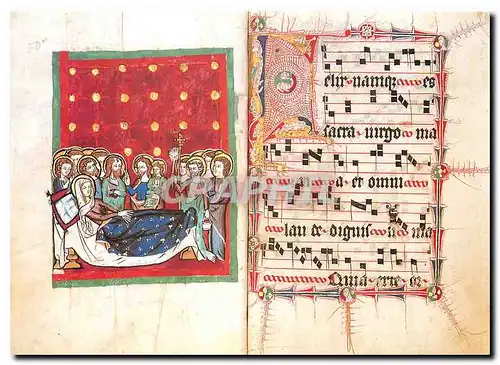 Felix namq es
sacra virgo ma
ria et omni
lau de dignis ma
Quia exte or
CARTOPHILIE